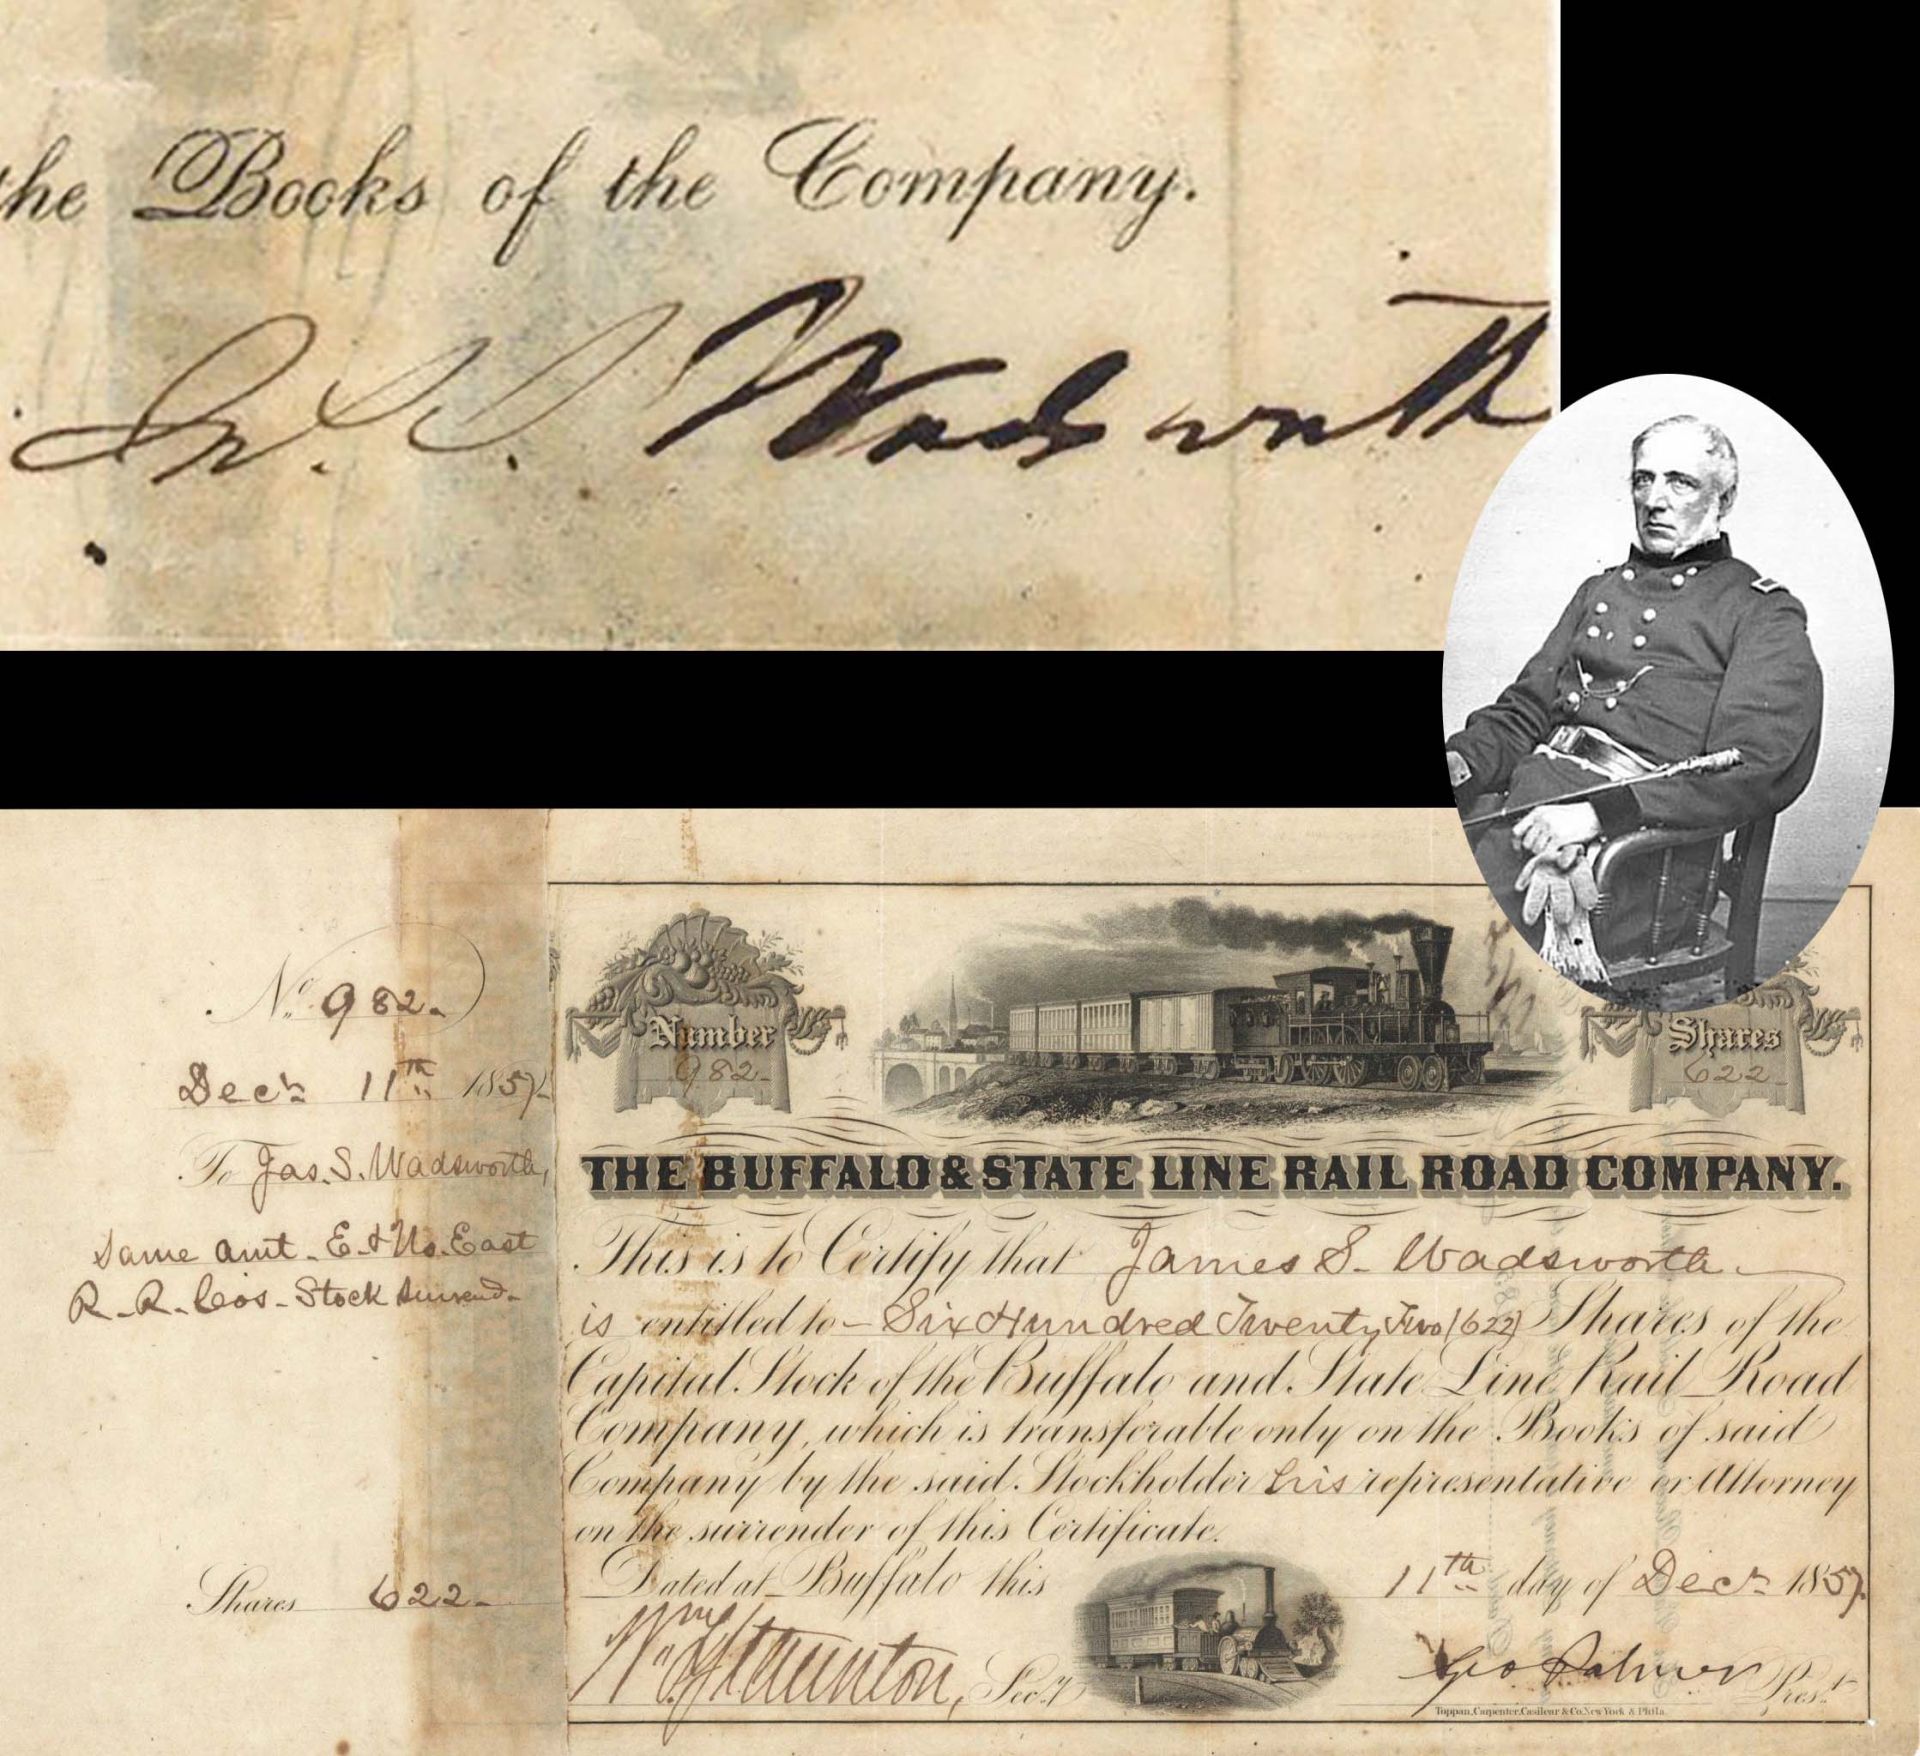 the Books of the Company.
Jas. S. Wadsworth
No. 982.
Decr. 11th 1857
To Jas. S. Wadsworth,
Same amt. E. & No. East
R. R. Cos. Stock surrend.
Shares 622
Number
982
Shares
622
THE BUFFALO & STATE LINE RAIL ROAD COMPANY.
This is to Certify that James S. Wadsworth
is entitled to Six Hundred Twenty Two (622) Shares of the
Capital Stock of the Buffalo and State Line Rail Road
Company, which is transferable only on the Books of said
Company by the said Stockholder his representative or Attorney
on the surrender of this Certificate.
Dated at Buffalo this 11th day of Decr. 1857.
Secy.
Geo Palmer Prest.
Toppan, Carpenter, Casilear & Co. New York & Phila.